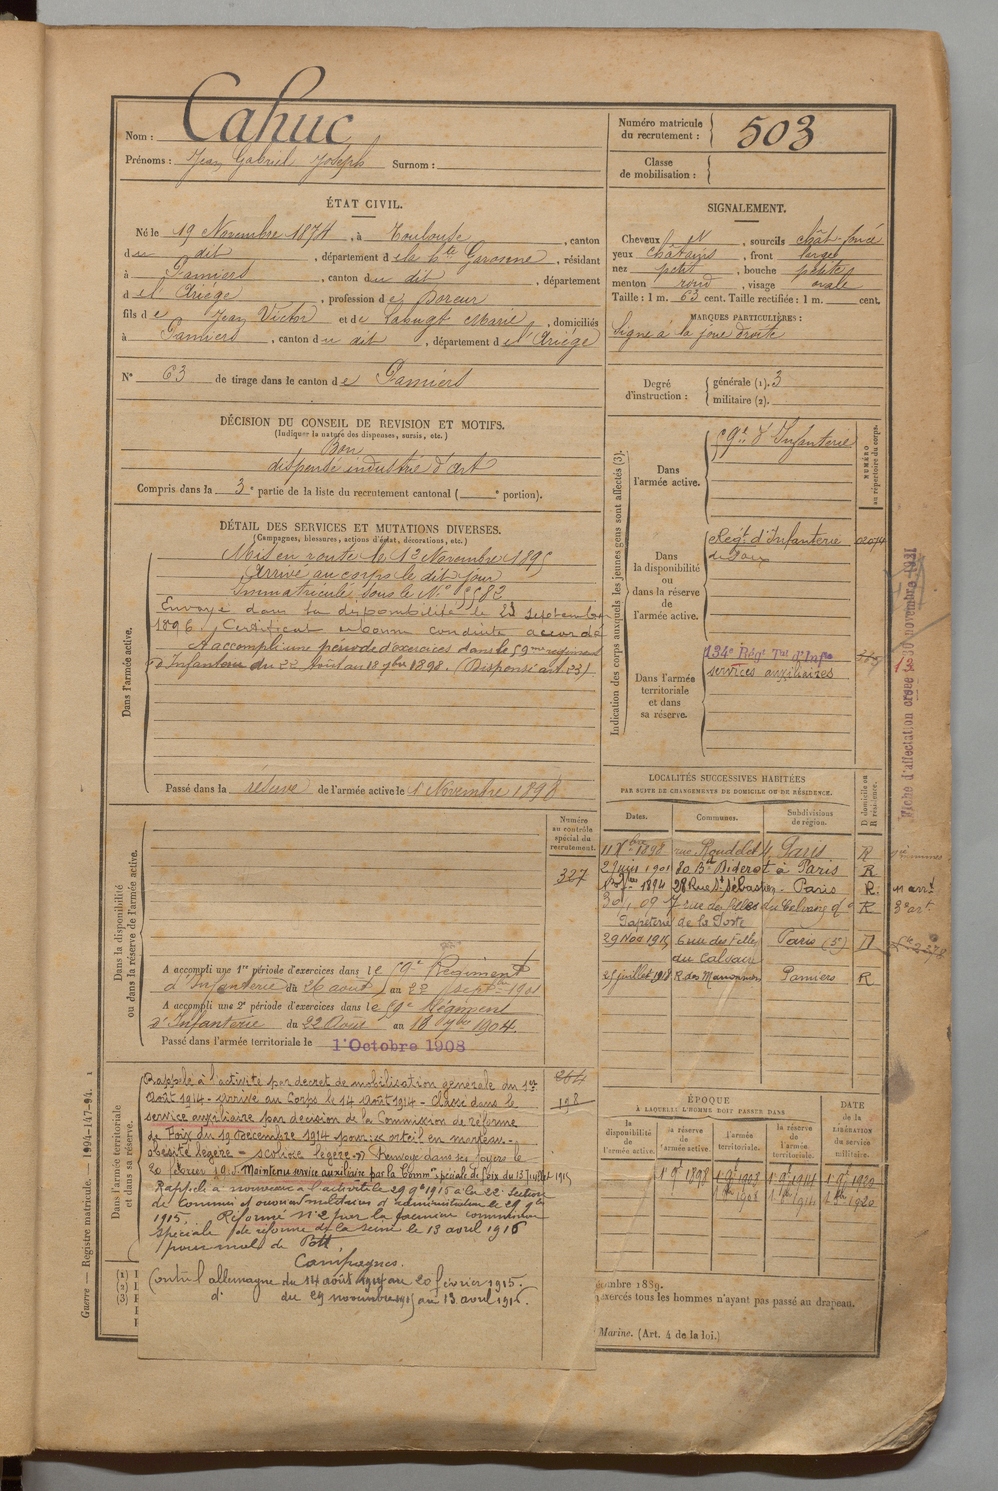 Nom : Cahuc
Prénoms : Jean Gabriel Joseph Surnom :
Numéro matricule du recrutement : 503
Classe de mobilisation :
ÉTAT CIVIL.
Né le 19 Novembre 1874, à Toulouse, canton
du dit, département de la Hte Garonne, résidant
à Pamiers, canton du dit, département
de l'Ariège, profession de doreur
fils de Jean Victor et de Marie, domiciliés
à Pamiers, canton du dit, département de l'Ariège
N° 63 de tirage dans le canton de Pamiers
SIGNALEMENT.
Cheveux, sourcils chât-foncé
yeux châtains, front large
nez petit, bouche petite
menton rond, visage ovale
Taille : 1 m. 63 cent. Taille rectifiée : 1 m. cent.
MARQUES PARTICULIÈRES :
Signe à la joue droite
Degré d'instruction : générale (1). 3
militaire (2).
DÉCISION DU CONSEIL DE REVISION ET MOTIFS.
(Indiquer la nature des dispenses, sursis, etc.)
Bon
dispensé industrie d'art
Compris dans la 3e partie de la liste du recrutement cantonal ( e portion).
DÉTAIL DES SERVICES ET MUTATIONS DIVERSES.
(Campagnes, blessures, actions d'éclat, décorations, etc.)
Dans l'armée active.
Mis en route le 12 Novembre 1895
Arrivé au corps le dit jour
Immatriculé sous le N°
Envoyé dans la disponibilité le 23 septembre
1896. Certificat de bonne conduite accordé
A accompli une période d'exercices dans le 59me régiment
d'Infanterie du 22 août au 18 7bre 1898. (Dispensé art. 23)
Passé dans la réserve de l'armée active le 1 Novembre 1898
Indication des corps auxquels les jeunes gens sont affectés (3).
NUMÉRO au répertoire du corps.
Dans l'armée active.
59e d'Infanterie
Dans la disponibilité ou dans la réserve de l'armée active.
Régt d'Infanterie
de Foix
02074
Dans l'armée territoriale et dans sa réserve.
134e Régt Tal d'Infie
services auxiliaires
Fiche d'affectation
30 novembre 1931
Dans la disponibilité ou dans la réserve de l'armée active.
Numéro au contrôle spécial du recrutement.
327
A accompli une 1re période d'exercices dans le 59e Régiment
d'Infanterie du 26 août au 22 septbre 1901
A accompli une 2e période d'exercices dans le 59e Régiment
d'Infanterie du 22 Août au 18 7bre 1904.
Passé dans l'armée territoriale le 1er Octobre 1908
LOCALITÉS SUCCESSIVES HABITÉES
PAR SUITE DE CHANGEMENTS DE DOMICILE OU DE RÉSIDENCE.
Dates. Communes. Subdivisions de région. D domicile ou R résidence.
1898 rue Paris R
2 juin 1901 80 Bd Diderot à Paris R
28 Rue St Sébastien - Paris R. 11 arrt
7 rue des filles du Calvaire R 3e art
Papeterie de la Poste
29 Nov 1915 6 rue des Filles Paris D
du Calvaire
25 juillet 1918 Pamiers R
Dans l'armée territoriale et dans sa réserve.
Rappelé à l'activité par décret de mobilisation générale du 1er
Août 1914 - arrivé au Corps le 14 Août 1914 - Classé dans le
service auxiliaire par décision de la Commission de réforme
de Foix du 19 décembre 1914 pour: orteil en marteau -
obésité légère - scoliose légère. Renvoyé dans ses foyers le
20 février 1915. Maintenu service auxiliaire par la Common spéciale de Foix du 13 juillet 1915
Rappelé à nouveau à l'activité le 29 9bre 1915 à la 22e Section
de Commis et ouvriers militaires d'administration le 29 9bre
1915. Réformé N° 2 par la commission
spéciale de réforme de la Seine le 13 avril 1916
pour mal de Pott
Campagnes.
Contre l'allemagne du 14 août 1914 au 20 février 1915.
d° du 29 novembre 1915 au 13 avril 1916.
264
198
ÉPOQUE
À LAQUELLE L'HOMME DOIT PASSER DANS
la disponibilité de l'armée active. la réserve de l'armée active. l'armée territoriale. la réserve de l'armée territoriale. DATE de la LIBÉRATION du service militaire.
1 9bre 1898 1 9bre 1908 1 9bre 1914 1 9bre 1920
1 8bre 1908 1 8bre 1914 1 8bre 1920
embre 1889.
exercés tous les hommes n'ayant pas passé au drapeau.
Marine. (Art. 4 de la loi.)
(1)
(2)
(3)
Guerre. — Registre matricule. — 1994-147-94. 1